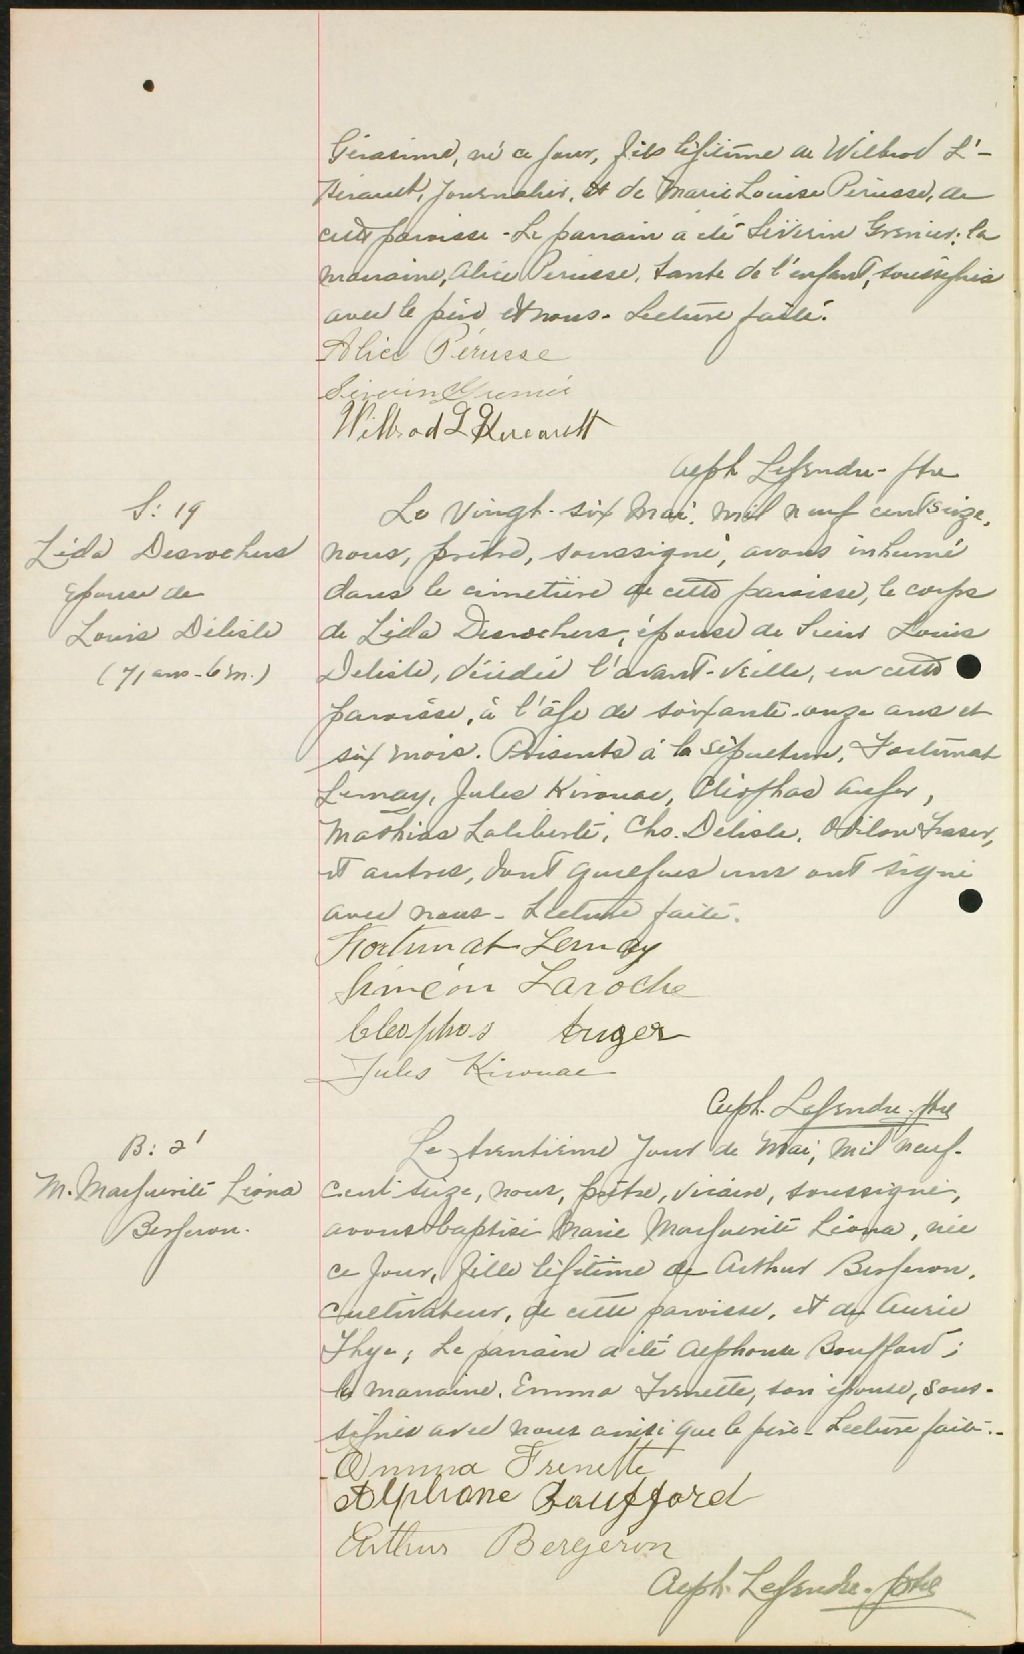 Gérasime, né ce jour, fils légitime de Wilbrod L'-
Hérault, journalier, et de Marie Louise Pérusse, de
cette paroisse - Le parrain a été Sévérin Grenier; la
marraine, Alice Pérusse, tante de l'enfant, soussignés
avec le père et nous - Lecture faite.
Alice Pérusse
Séverin Grenier
Wilbrod L Hereault
Alph. Legendre - ptre
S: 19
Léda Desrochers
épouse de
Louis Délisle
(71 ans - 6 m.)
Le vingt-six Mai, mil neuf cent seize,
nous, prêtre, soussigné, avons inhumé
dans le cimetière de cette paroisse, le corps
de Léda Desrochers, épouse de Sieur Louis
Delisle, décédée l'avant-veille, en cette
paroisse, à l'âge de soixante-onze ans et
six mois. Présents à la sépulture, Fortunat
Lemay, Jules Kirouac, Cléophas Auger,
Mathias Laliberté, Chs. Delisle, Odilon Fraser,
et autres, dont quelques uns ont signé
avec nous - Lecture faite.
Fortunat Lemay
Siméon Laroche
Cleophas Auger
Jules Kirouac
Alph. Legendre - ptre
B: 21
M. Marguerite Léona
Bergeron.
Le trentième jour de Mai, mil neuf-
cent seize, nous, prêtre, vicaire, soussigné,
avons baptisé Marie Marguerite Léona, née
ce jour, fille légitime de Arthur Bergeron,
cultivateur, de cette paroisse, et de Aurie
; Le parrain a été Alphonse Bouffard;
la marraine, Emma Frenette, son épouse, sous-
signés avec nous ainsi que le père - Lecture faite.-
Emma Frenette
Alphonse Bouffard
Arthur Bergeron
Alph. Legendre - ptre